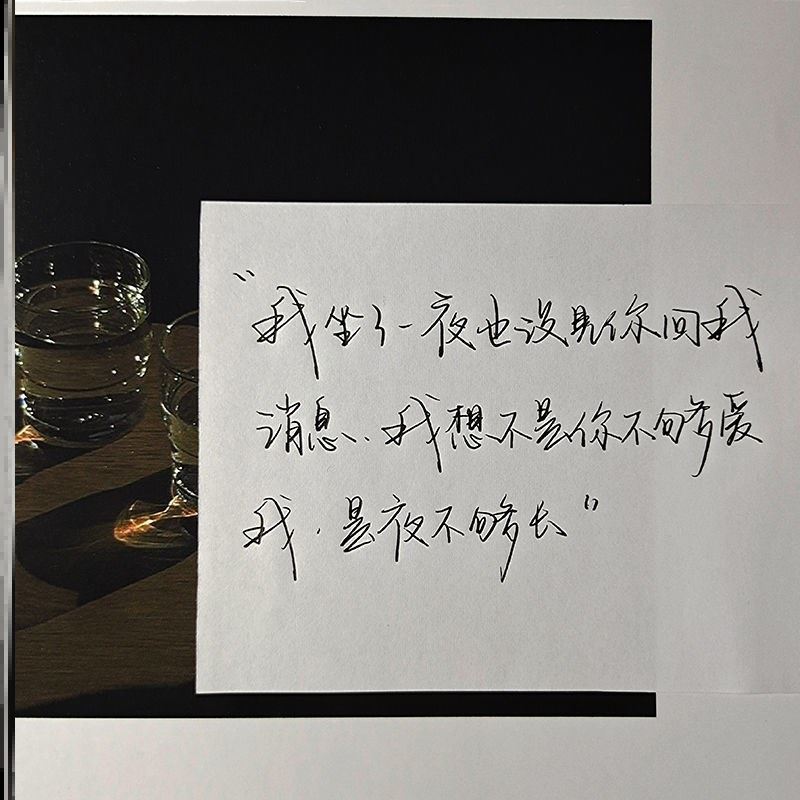 “我坐了一夜也没见你回我
消息..我想不是你不够爱
我.是夜不够长”